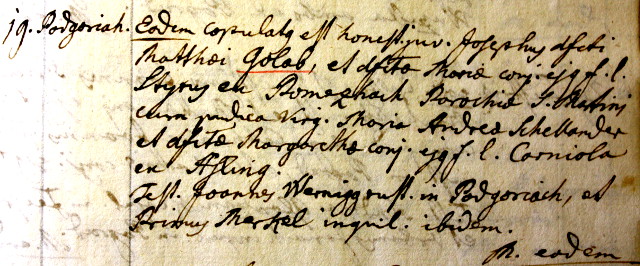 19. Podgoriah. Eodem copulatq est honest. juv. Josephus dfcti
Matthaei Golob, et dfctae Mariae conj. ejq f. l.
Styrus ex Pomeznach Parochiae S. Martini
cum pudica Virg. Maria Andreae Schellander
et dfctae Margarethae conj. ejq f. l. Carniola
ex Asling.
Test. Joannes Wernigg rust. in Podgoriach, et
Primus Merkel inquil. ibidem.
eodem